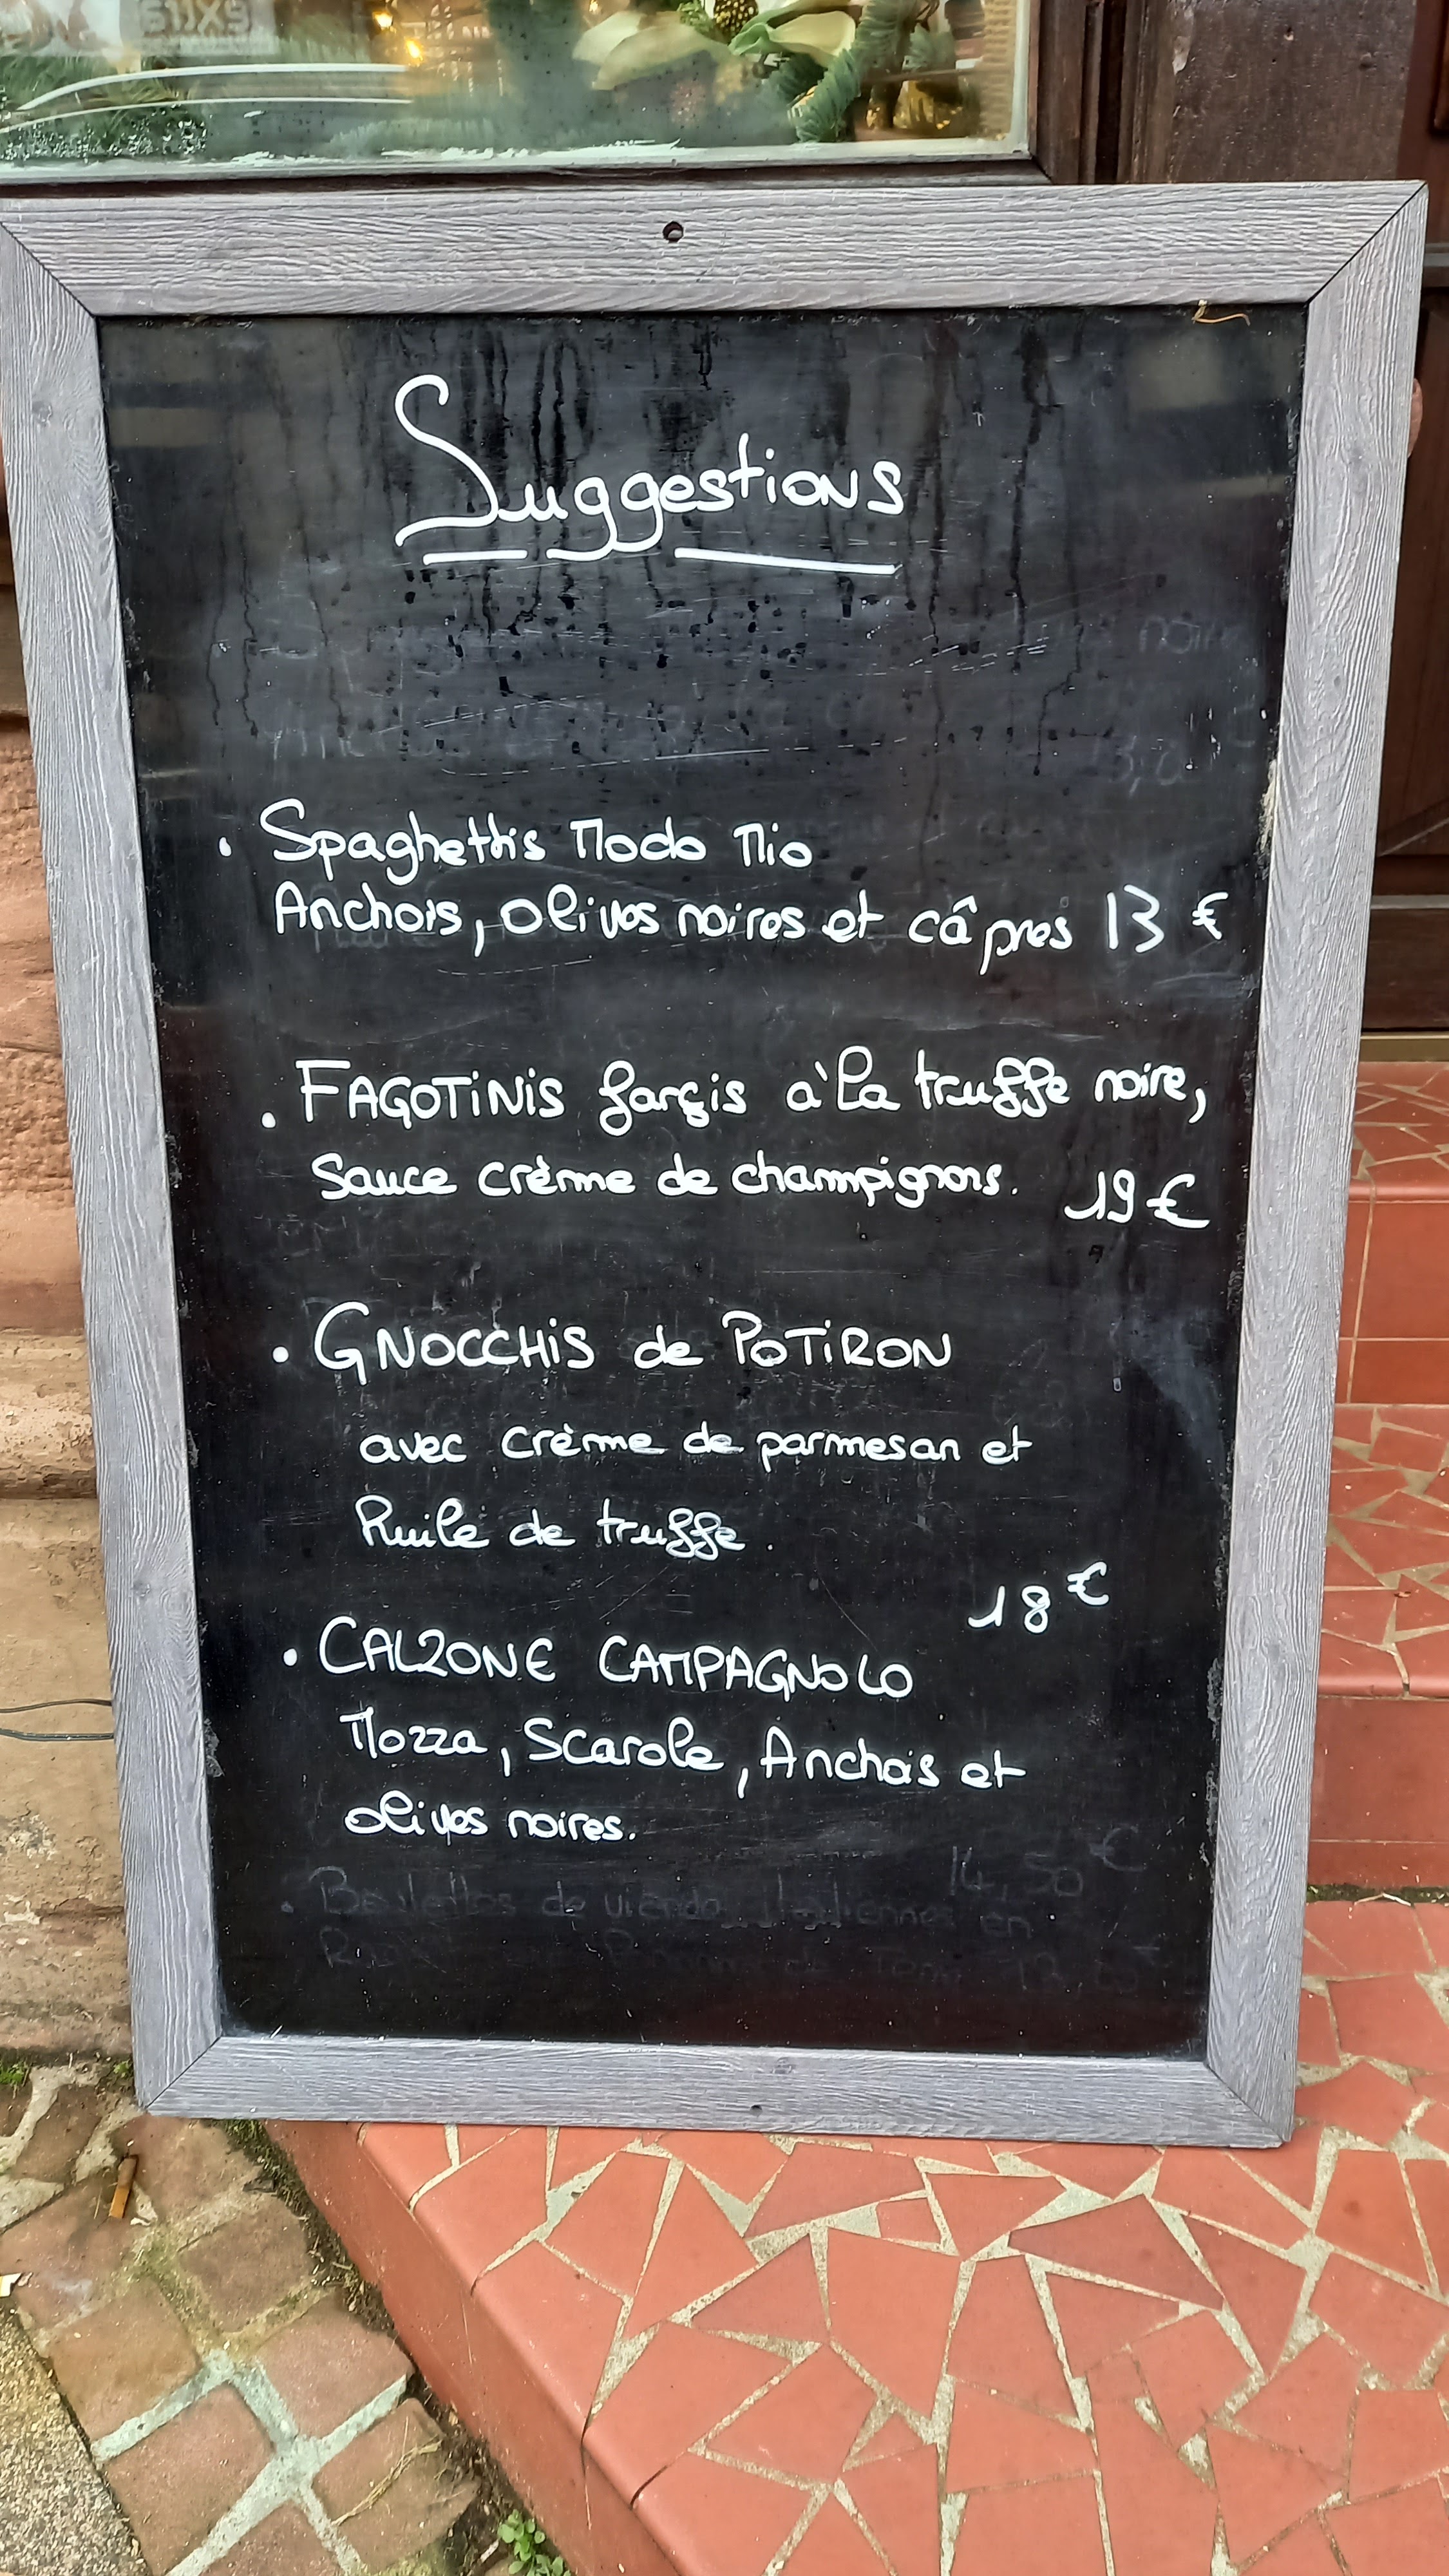 Suggestions
• Spaghettis Modo Mio
Anchois, olives noires et câpres 13 €
• FAGOTINIS farçis à la truffe noire,
Sauce crème de champignons. 19 €
• GNOCCHIS de POTIRON
avec crème de parmesan et
huile de truffe.
18 €
• CALZONE CAMPAGNOLO
Mozza, Scarole, Anchois et
olives noires.
14,50 €